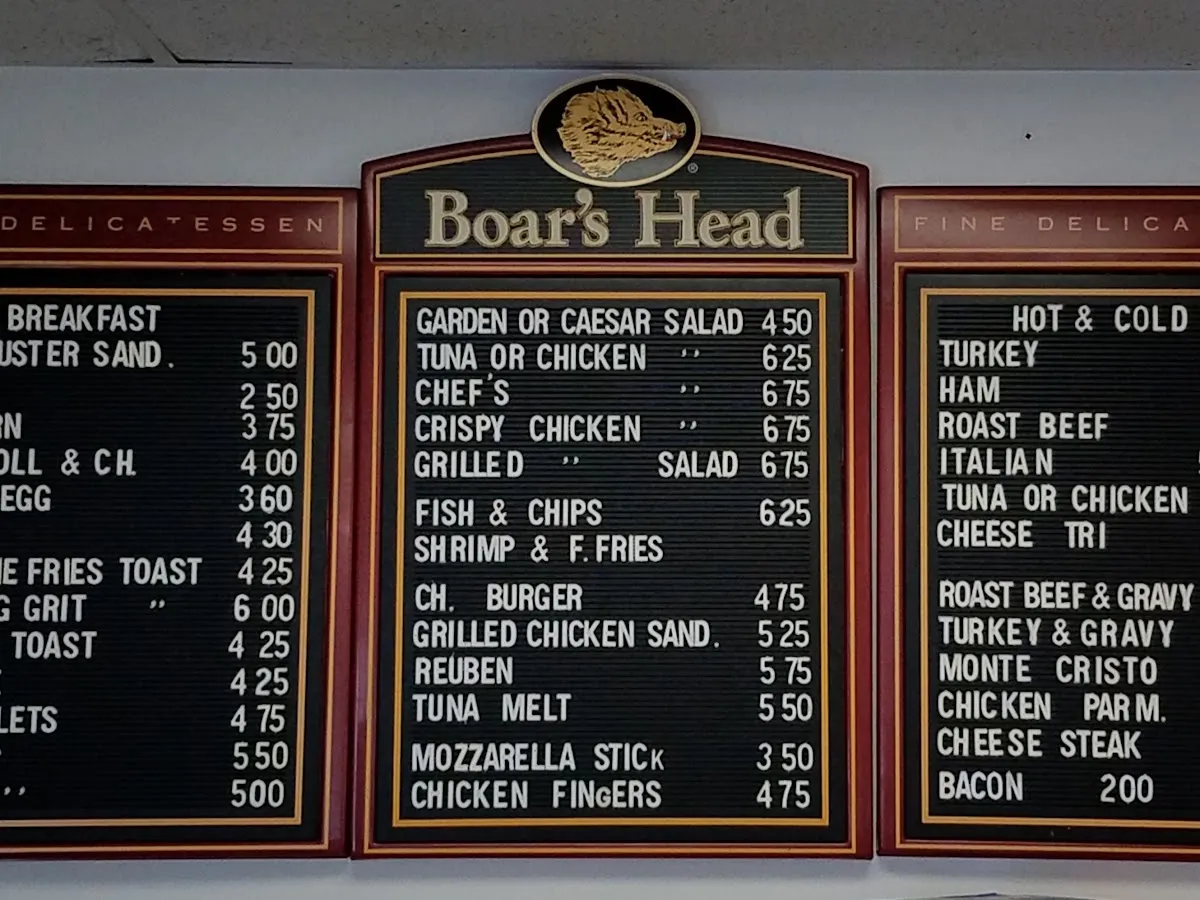 DELICATESSEN
BREAKFAST
USTER SAND. 5 00
2 50
RN 3 75
OLL & CH. 4 00
EGG 3 60
4 30
E FRIES TOAST 4 25
G GRIT " 6 00
TOAST 4 25
4 25
LETS 4 75
5 50
" 5 00
Boar's Head
®
GARDEN OR CAESAR SALAD 4 50
TUNA OR CHICKEN " 6 25
CHEF'S " 6 75
CRISPY CHICKEN " 6 75
GRILLED " SALAD 6 75
FISH & CHIPS 6 25
SHRIMP & F. FRIES
CH. BURGER 4 75
GRILLED CHICKEN SAND. 5 25
REUBEN 5 75
TUNA MELT 5 50
MOZZARELLA STICK 3 50
CHICKEN FINGERS 4 75
FINE DELICA
HOT & COLD
TURKEY
HAM
ROAST BEEF
ITALIAN
TUNA OR CHICKEN
CHEESE TRI
ROAST BEEF & GRAVY
TURKEY & GRAVY
MONTE CRISTO
CHICKEN PARM.
CHEESE STEAK
BACON 2 00